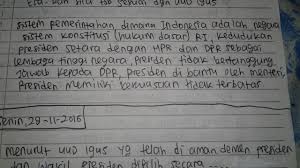 Era dan sila tsb sebuah dgn uud 1945
sistem pemerintahan dimana Indonesia adalah negara
sistem konstitusi (hukum dasar) RI, kedudukan
Presiden setara dengan MPR dan DPR sebagai
lembaga tinggi negara, Presiden tidak bertanggung
jawab kepada DPR, presiden di bantu oleh menteri,
Presiden memiliki kekuasaan tidak terbatas
Senin, 29-11-2016
menurut uud 1945 yg telah di amandemen presiden
dan wakil presiden dipilih secara